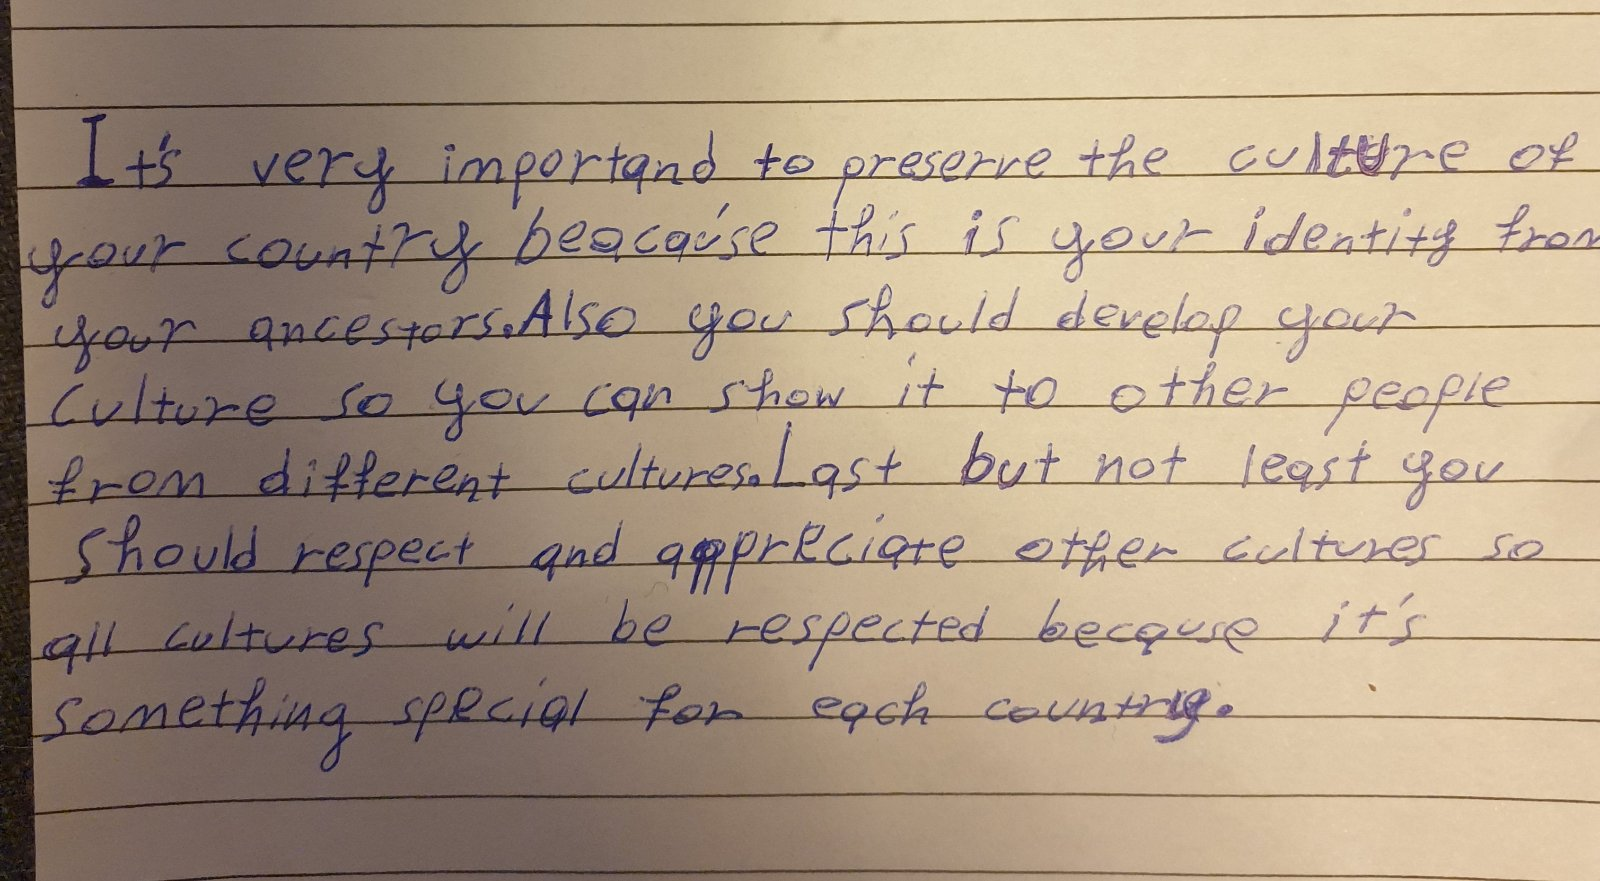 It's very importand to preserve the culture of
your country beacause this is your identity from
your ancestors.Also you should develop your
culture so you can show it to other people
from different cultures.Last but not least you
should respect and appreciate other cultures so
all cultures will be respected because it's
something special for each country.